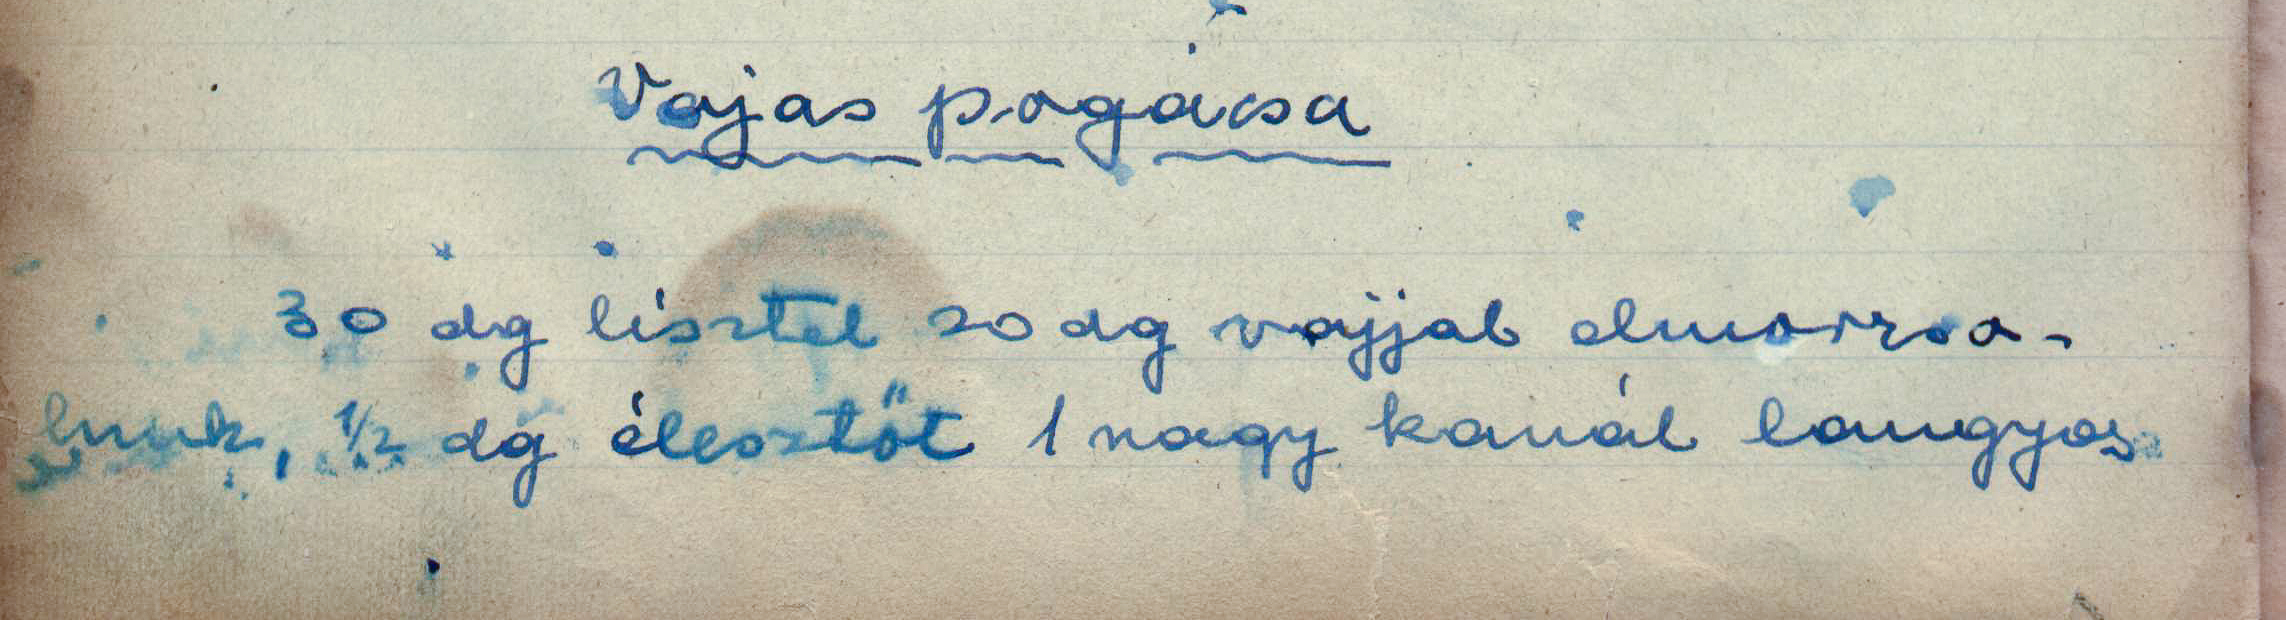 Vajas pogácsa
30 dg lisztel 20 dg vajjal elmorzso-
lunk, 1/2 dg élesztőt 1 nagy kanál langyos